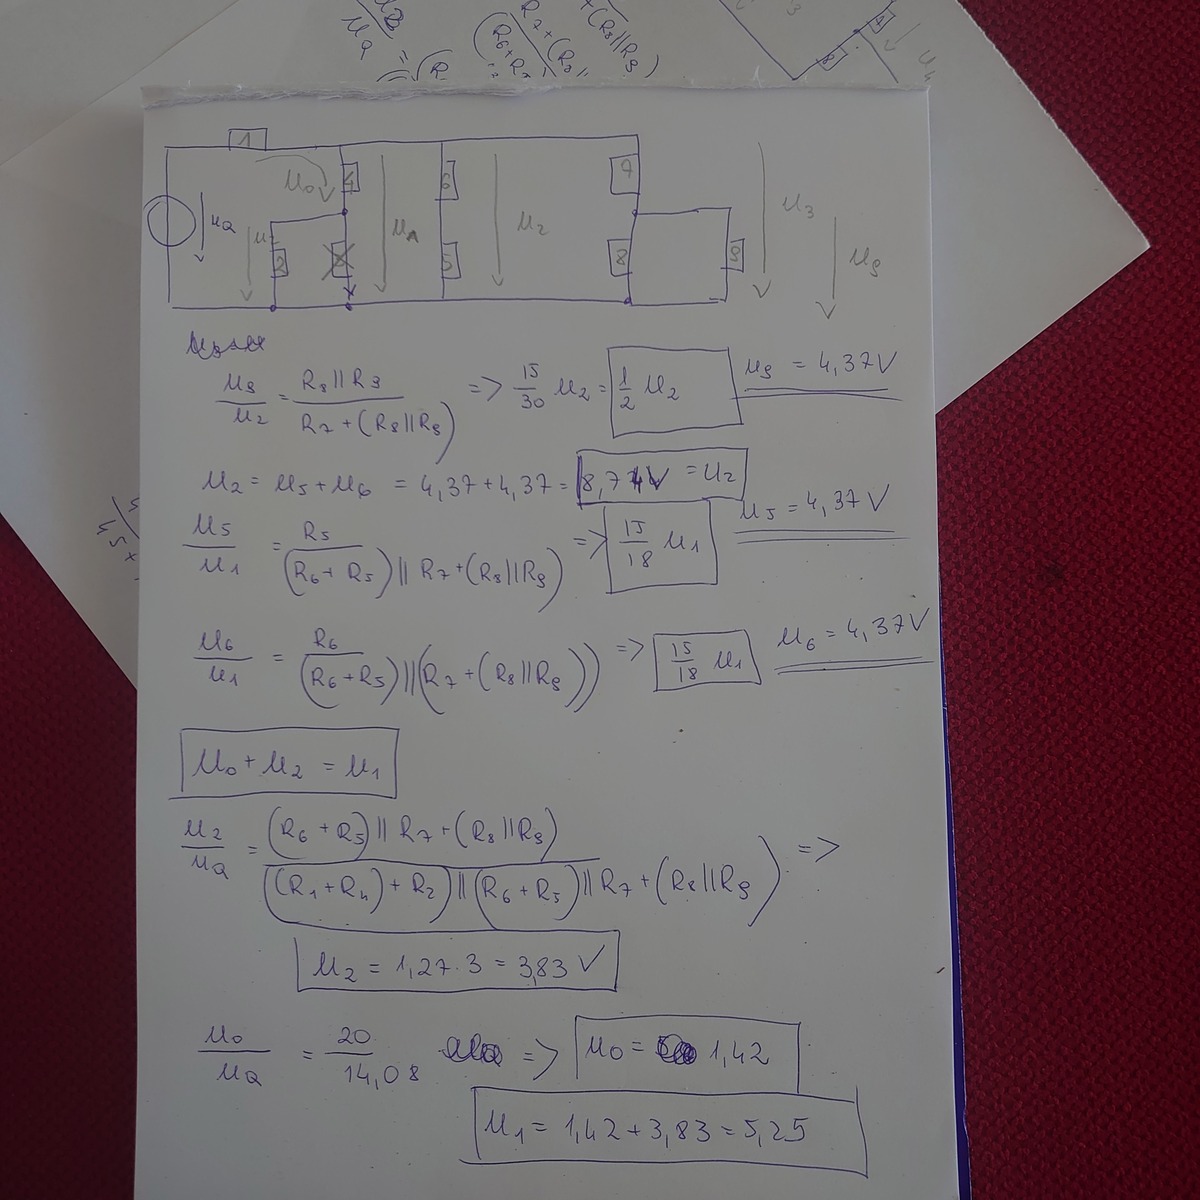 1
4
6
7
U₀
U_Q
U_A
U₂
U₃
U₉
2
5
8
9
U₉/U₂ = R₈||R₉/R₇+(R₈||R₉) => 15/30 U₂ = 1/2 U₂ U₉ = 4,37V
U₂ = U₅+U₆ = 4,37+4,37= 8,74V = U₂
U₅/U₁ = R₅/(R₆+R₅)||R₇+(R₈||R₉) => 15/18 U₁ U₅ = 4,37V
U₆/U₁ = R₆/(R₆+R₅)||(R₇+(R₈||R₉)) => 15/18 U₁ U₆ = 4,37V
U₀+U₂ = U₁
U₂/U_Q = (R₆+R₅)||R₇+(R₈||R₉)/((R₁+R₄)+R₂)||(R₆+R₅)||R₇+(R₈||R₉) =>
U₂ = 1,27·3 = 3,83 V
U₀/U_Q = 20/14,08 => U₀ = 1,42
U₁ = 1,42+3,83 = 5,25